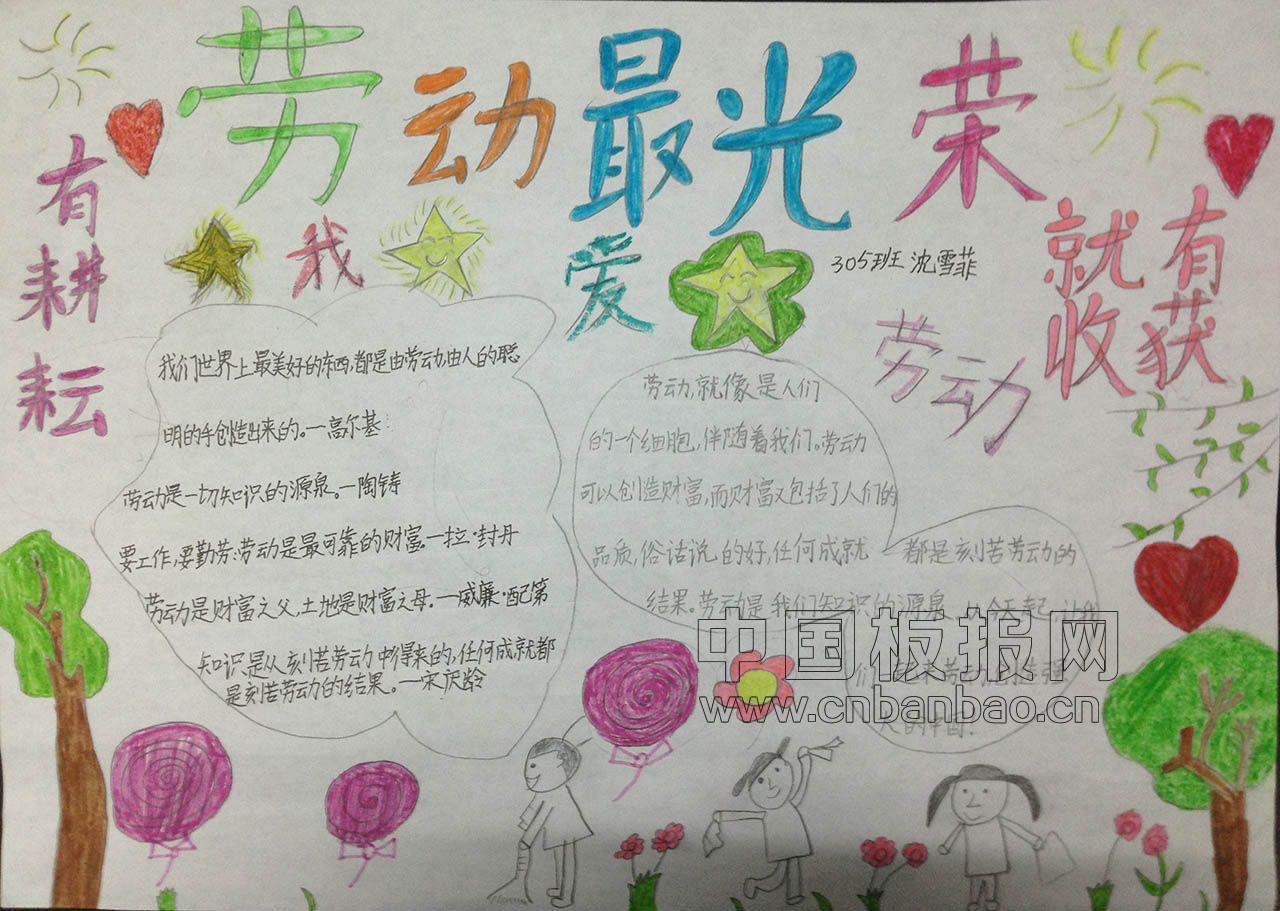 劳动最光荣
有耕耘
就有收获
我爱劳动
305班 沈雪菲
我们世界上最美好的东西,都是由劳动,由人的聪
明的手创造出来的。—高尔基
劳动是一切知识的源泉。—陶铸
要工作,要勤劳:劳动是最可靠的财富。—拉·封丹
劳动是财富之父,土地是财富之母。—威廉·配第
知识是从刻苦劳动中得来的,任何成就都
是刻苦劳动的结果。—宋庆龄
劳动,就像是人们
的一个细胞,伴随着我们。劳动
可以创造财富,而财富又包括了人们的
品质,俗话说的好,任何成就都是刻苦劳动的
结果。劳动是我们知识的源泉 从今天起,让我
们 起来劳动,创造强
大的中国!
中国板报网
www.cnbanbao.cn